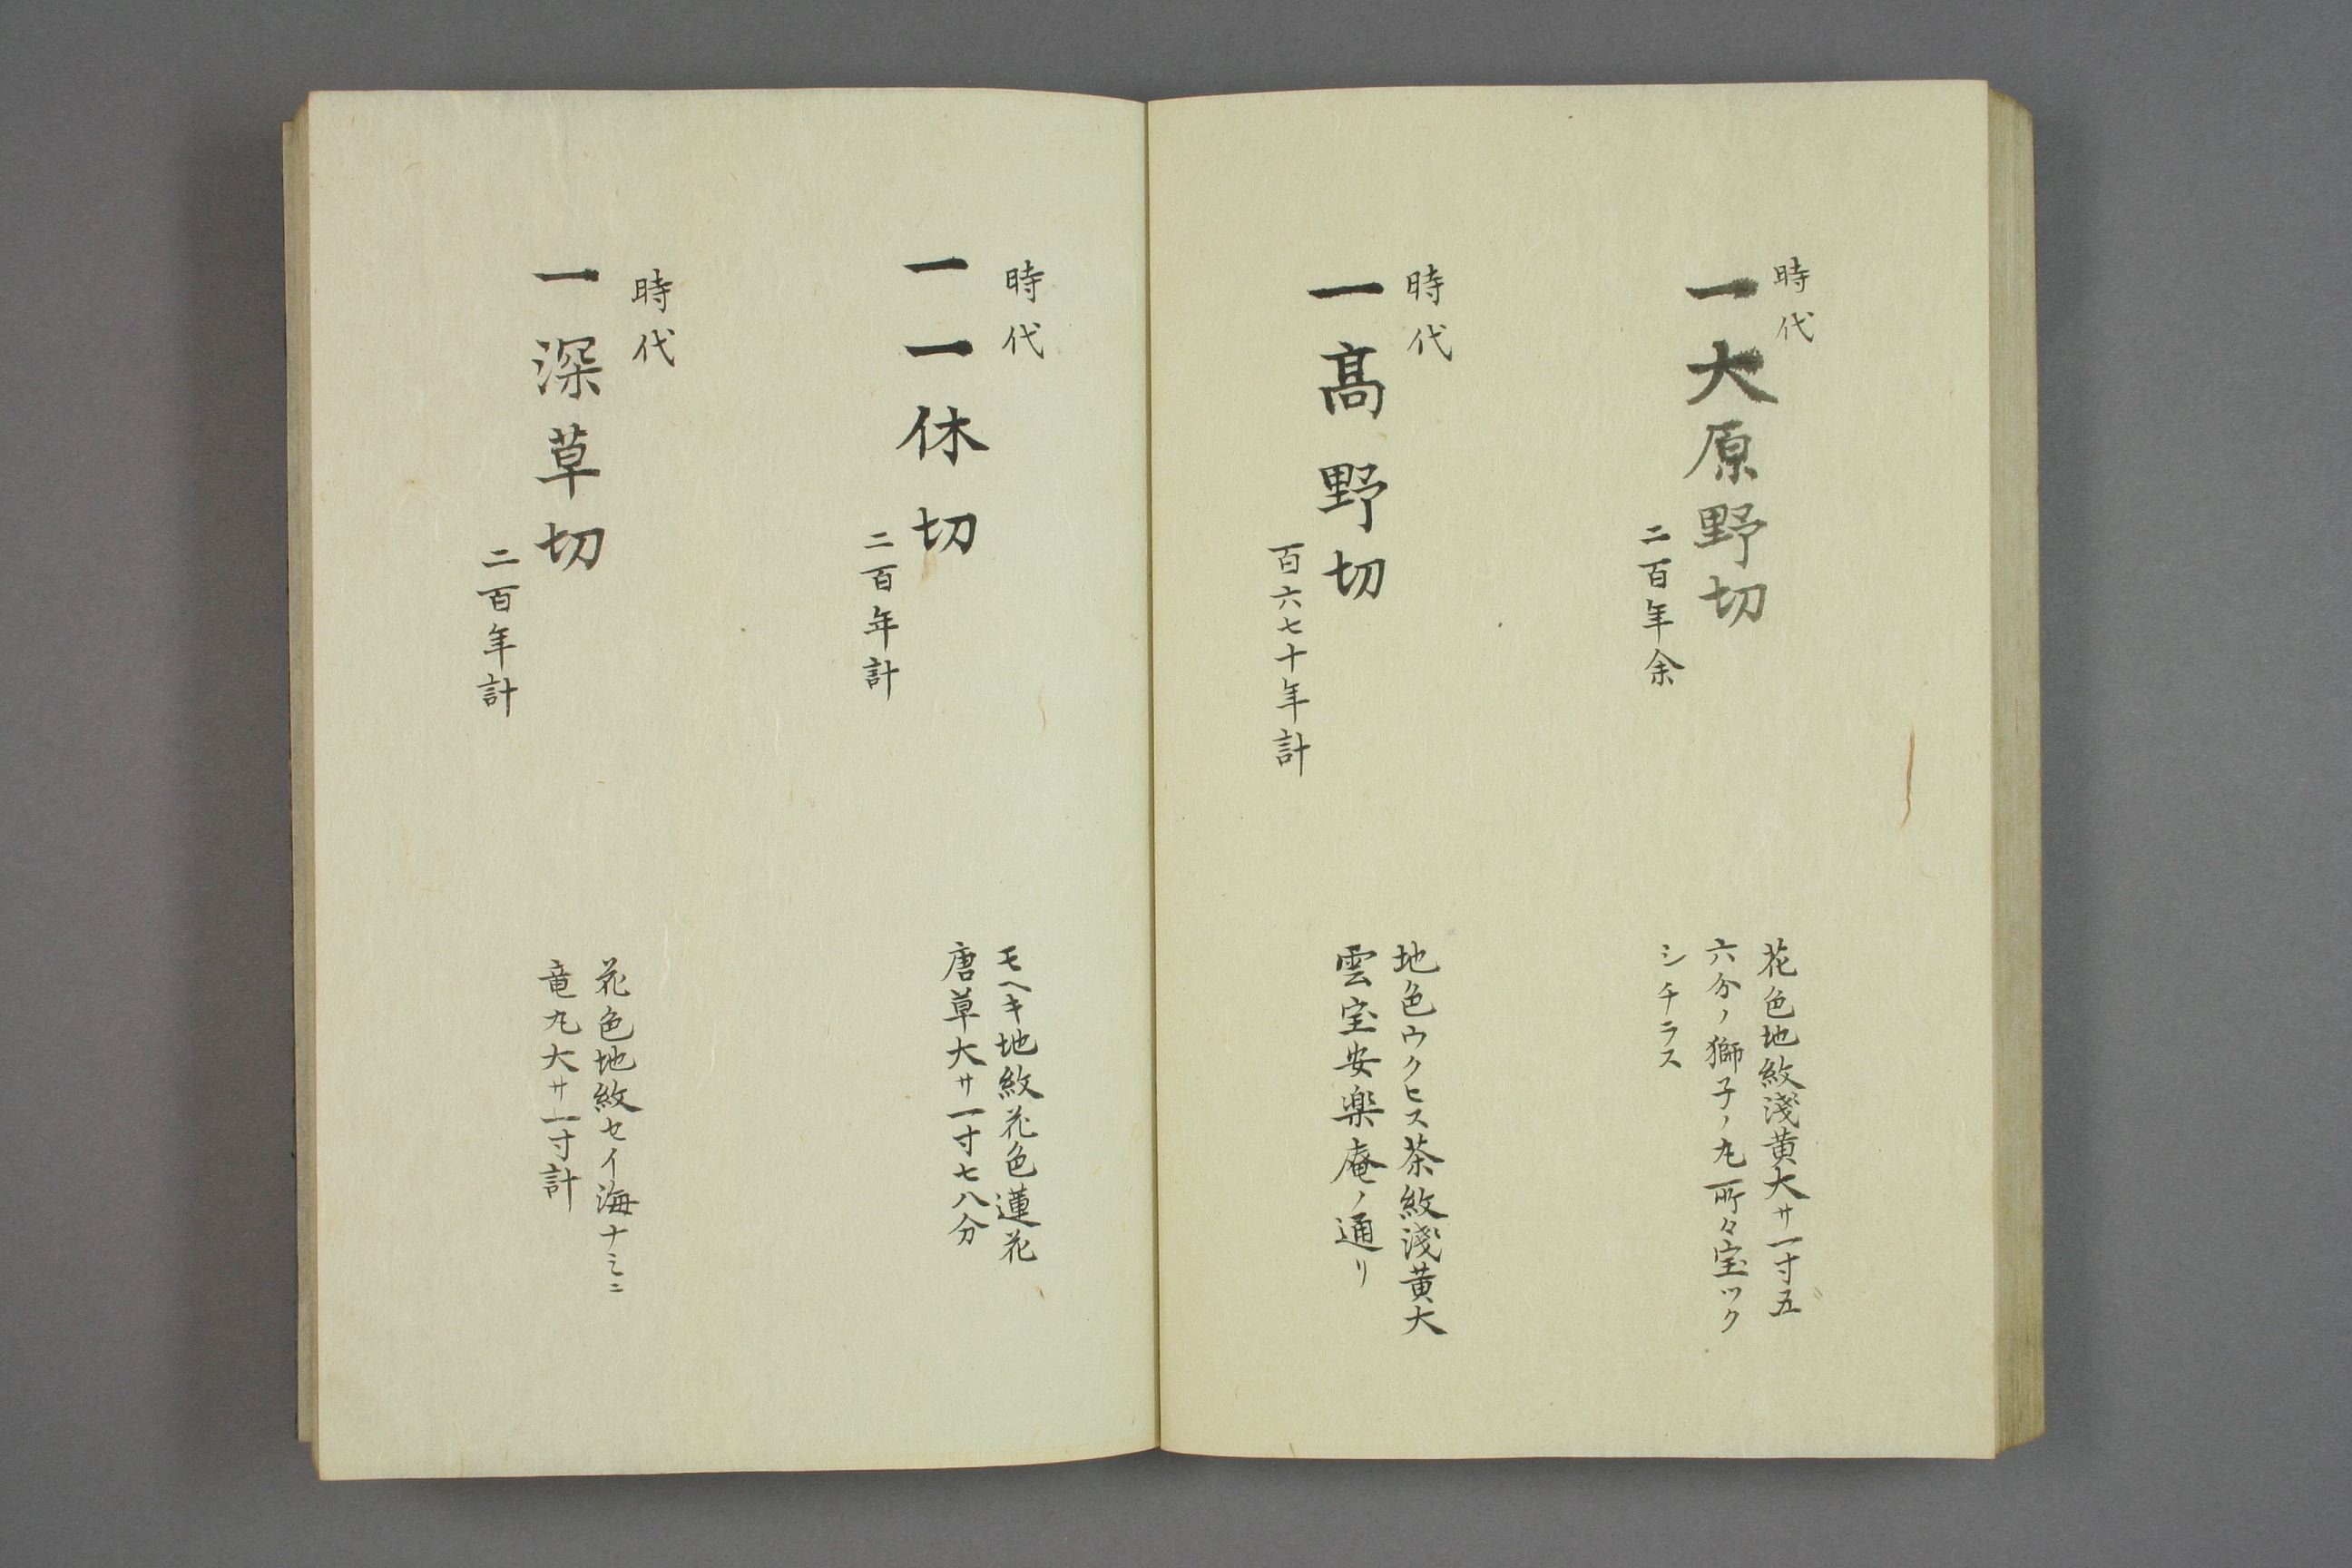 時代
一大原野切
二百年余
花色地紋淺黄大サ一寸五
六分ノ獅子ノ丸所々宝ツク
シチラス
時代
一高野切
百六七十年計
地色ウクヒス茶紋淺黄大
雲宝安楽庵ノ通リ
時代
一一休切
二百年計
モヘキ地紋花色蓮花
唐草大サ一寸七八分
時代
一深草切
二百年計
花色地紋セイ海ナミニ
竜丸大サ一寸計